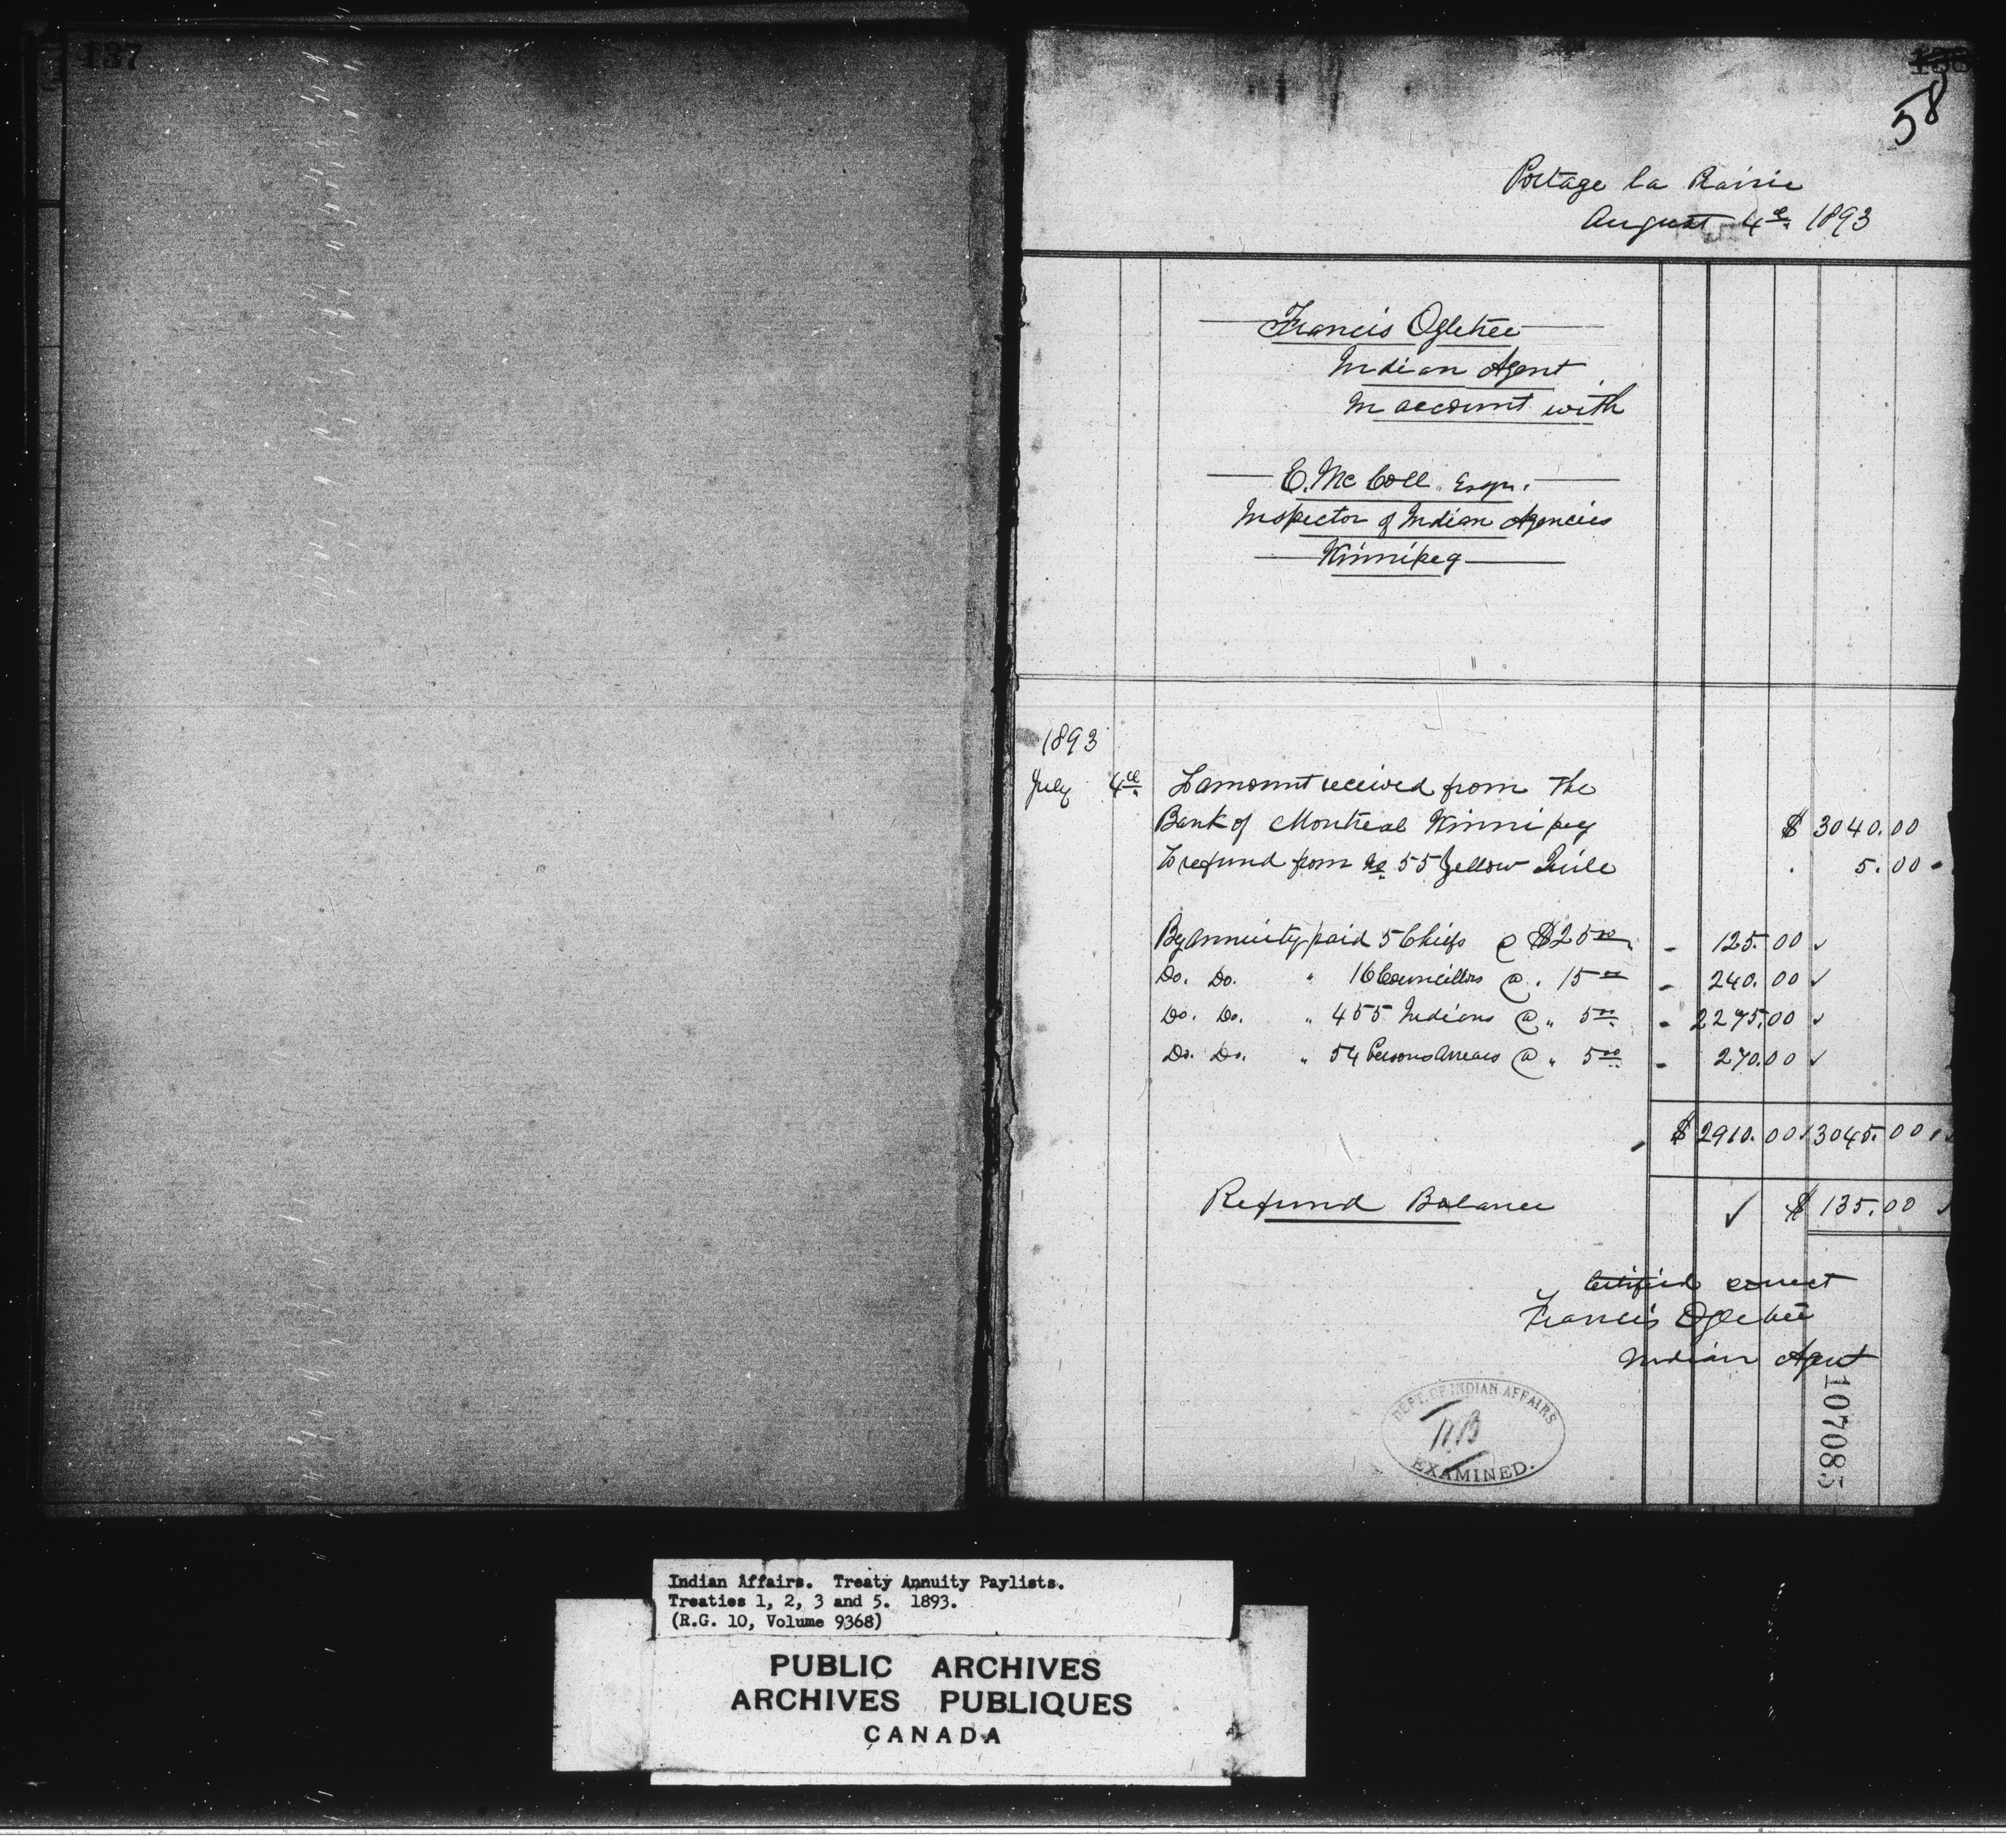 137
58
Portage la Prairie
August 4th 1893
Francis Ogletree
Indian Agent
In account with
E. McColl Esqr.
Inspector of Indian Agencies
Winnipeg
1893
July 4th To amount received from the
Bank of Montreal Winnipeg $ 3040.00
To refund from No 55 Yellow Quile 5.00
By annuity paid 5 Chiefs @ $25.00 - 125.00 ✓
Do. Do. " 16 Councillors @ . 15.00 - 240.00 ✓
Do. Do. " 455 Indians @ " 5.00 - 2275.00 ✓
Do. Do. " 54 Persons Arrears @ " 5.00 - 270.00 ✓
$ 2910.00 ✓ 3045.00
Refund Balance ✓ $ 135.00 ✓
Certified correct
Francis Ogletree
Indian Agent
107085
DEPT. OF INDIAN AFFAIRS
EXAMINED.
Indian Affairs. Treaty Annuity Paylists.
Treaties 1, 2, 3 and 5. 1893.
(R.G. 10, Volume 9368)
PUBLIC ARCHIVES
ARCHIVES PUBLIQUES
CANADA